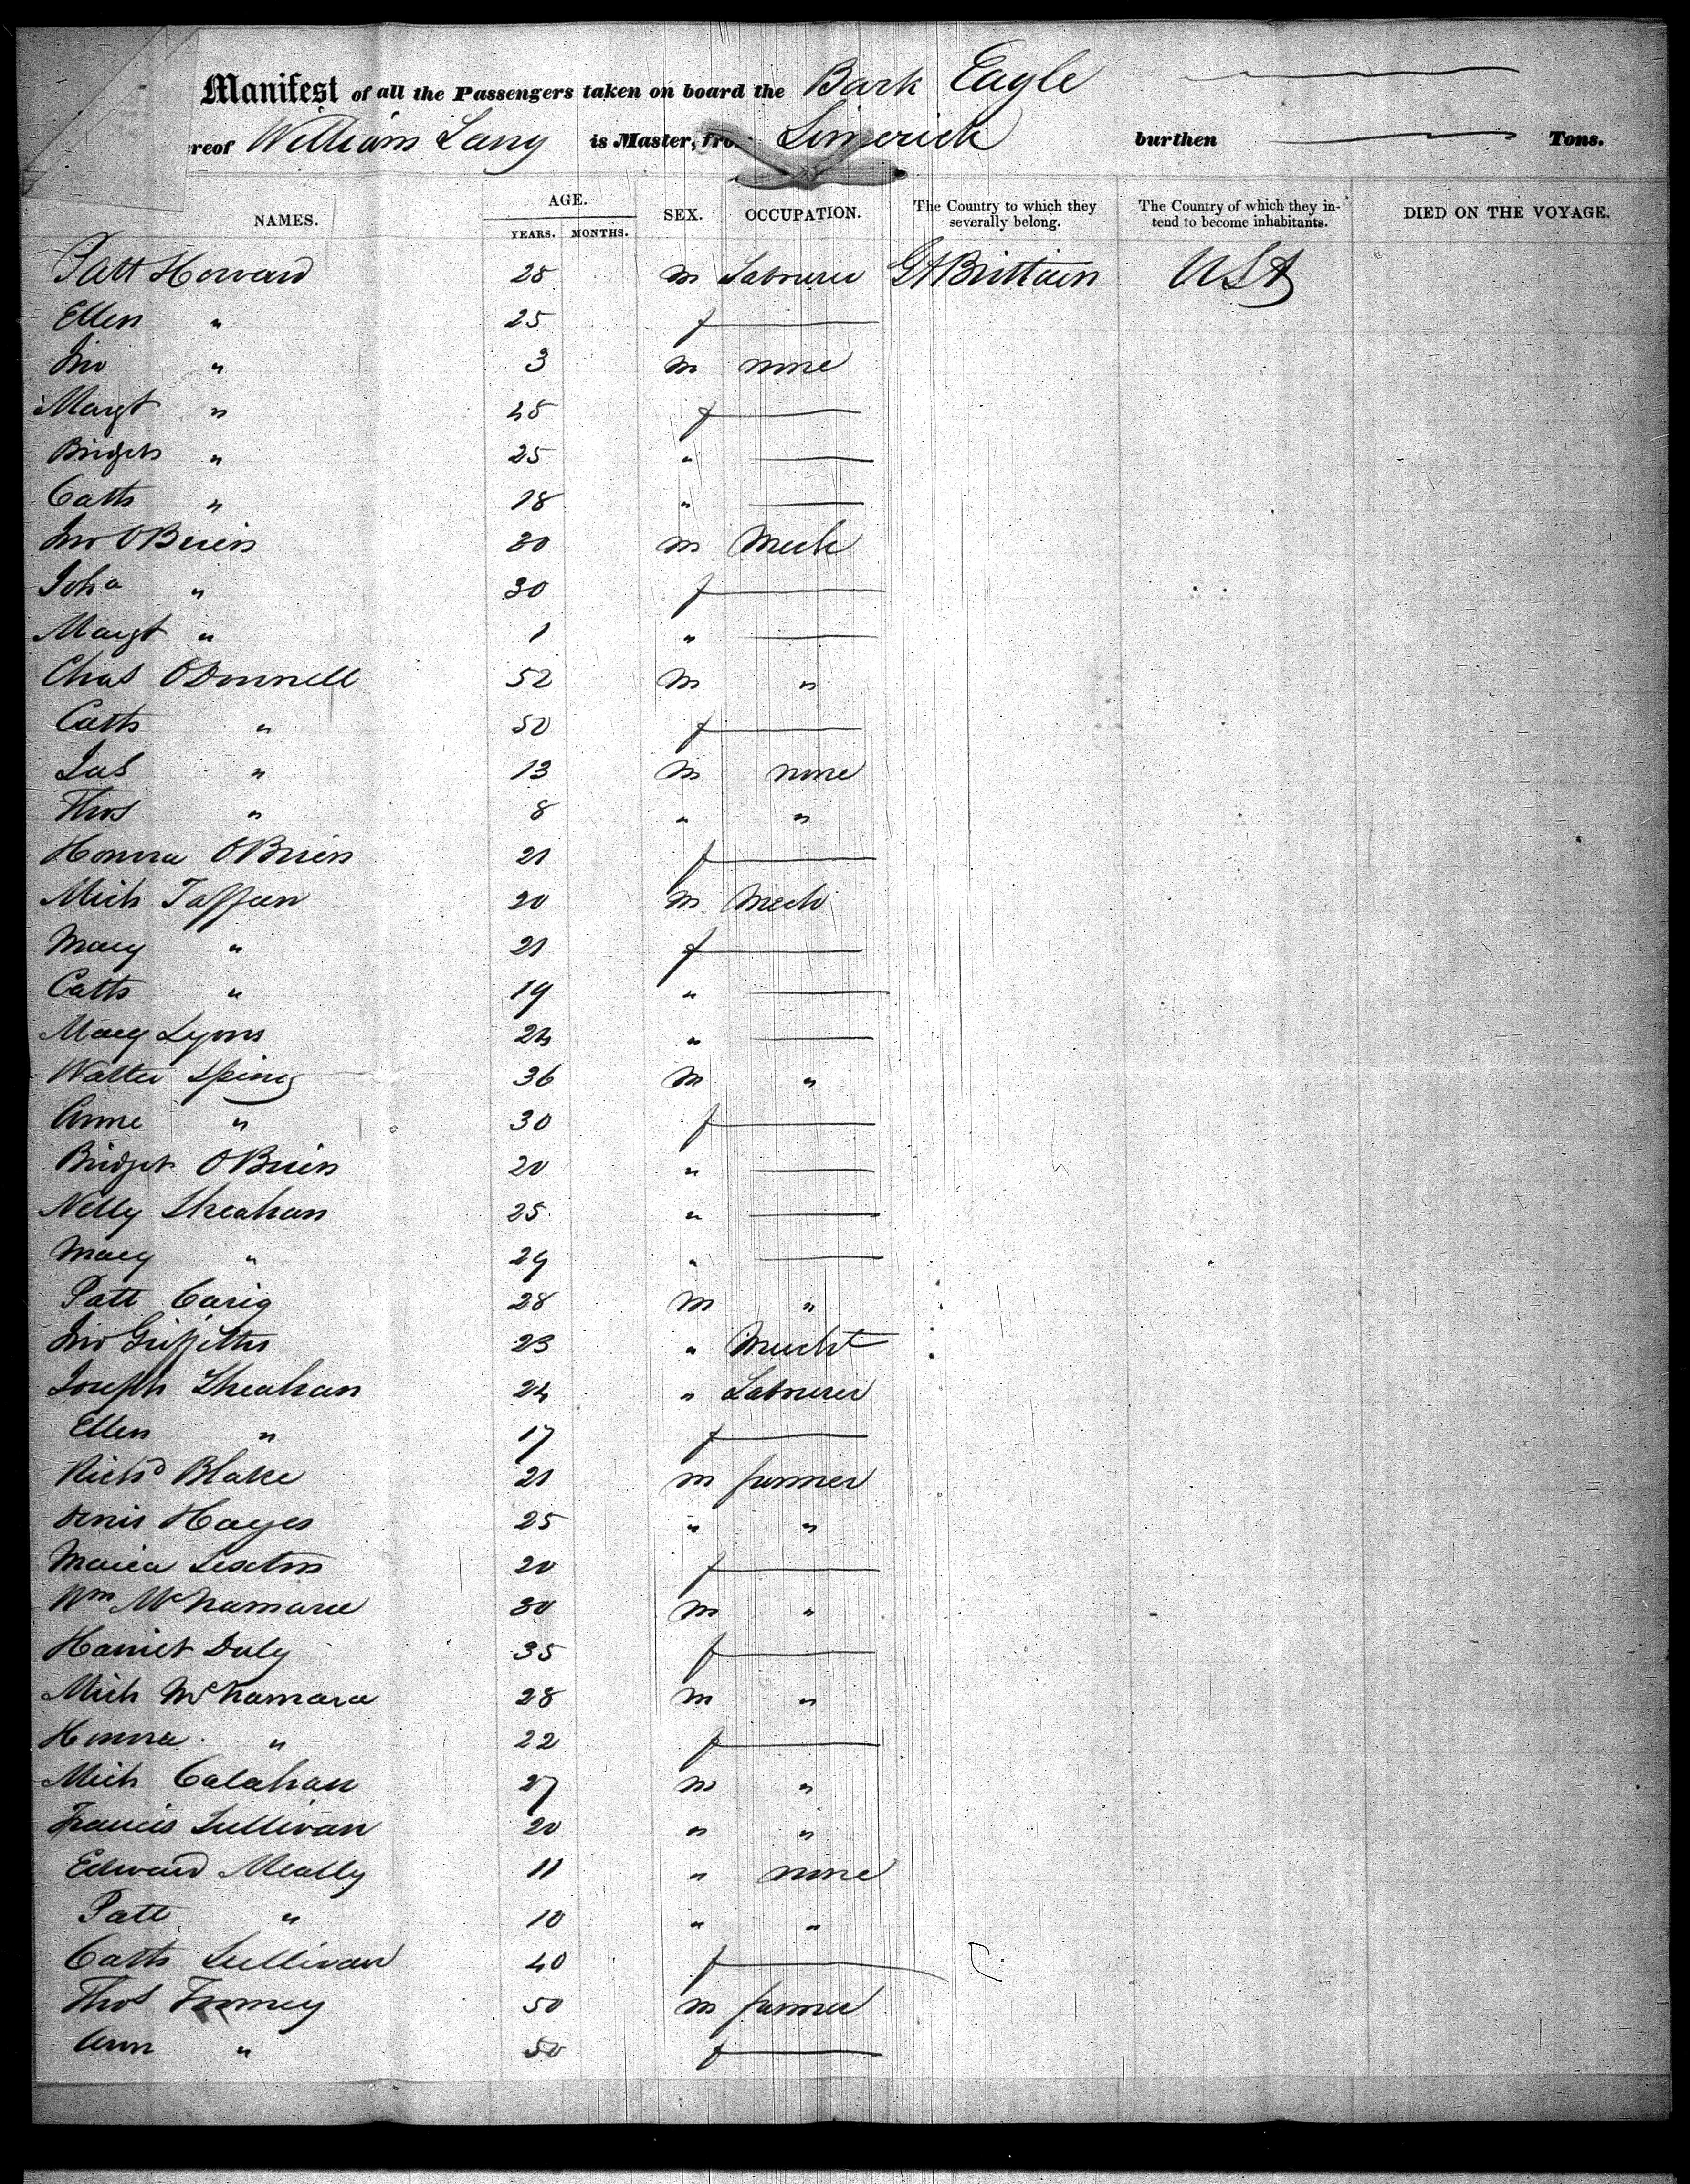 Manifest of all the Passengers taken on board the Bark Eagle
reof William Lany is Master, from Limerick burthen Tons.
NAMES. AGE. YEARS. MONTHS. SEX. OCCUPATION. The Country to which they severally belong. The Country of which they intend to become inhabitants. DIED ON THE VOYAGE.
Patt Howard 28 m Labourer Gt Brittain USA
Ellen " 25 f
Jno " 3 m none
Margt " 45 f
Bridget " 25 "
Cath " 18 "
Jno OBrien 30 m Mech
Joha " 30 f
Margt " 1 "
Chas ODonnell 52 m "
Cath " 50 f
Jas " 13 m none
Thos " 8 " "
Honora OBrien 21 f
Mich 20 m Mech
Mary " 21 f
Cath " 19 "
Mary Lyons 24 "
Walter Spring 36 m "
Anne " 30 f
Bridget OBrien 20 "
Nelly Sheahan 25 "
Mary " 29 "
Patt 28 m "
Jno Griffiths 23 " Mercht
Joseph Sheahan 24 " Labourer
Ellen " 17 f
Richd Blake 21 m farmer
Denis Hayes 25 " "
Maria Sexton 20 f
Wm McNamara 30 m "
Harriet Daly 35 f
Mich McNamara 28 m "
Honora " 22 f
Mich Calahan 27 m "
Francis Sullivan 20 " "
Edward Meally 11 " none
Patt " 10 " "
Cath Sullivan 40 f
Thos 50 m farmer
Ann " 50 f